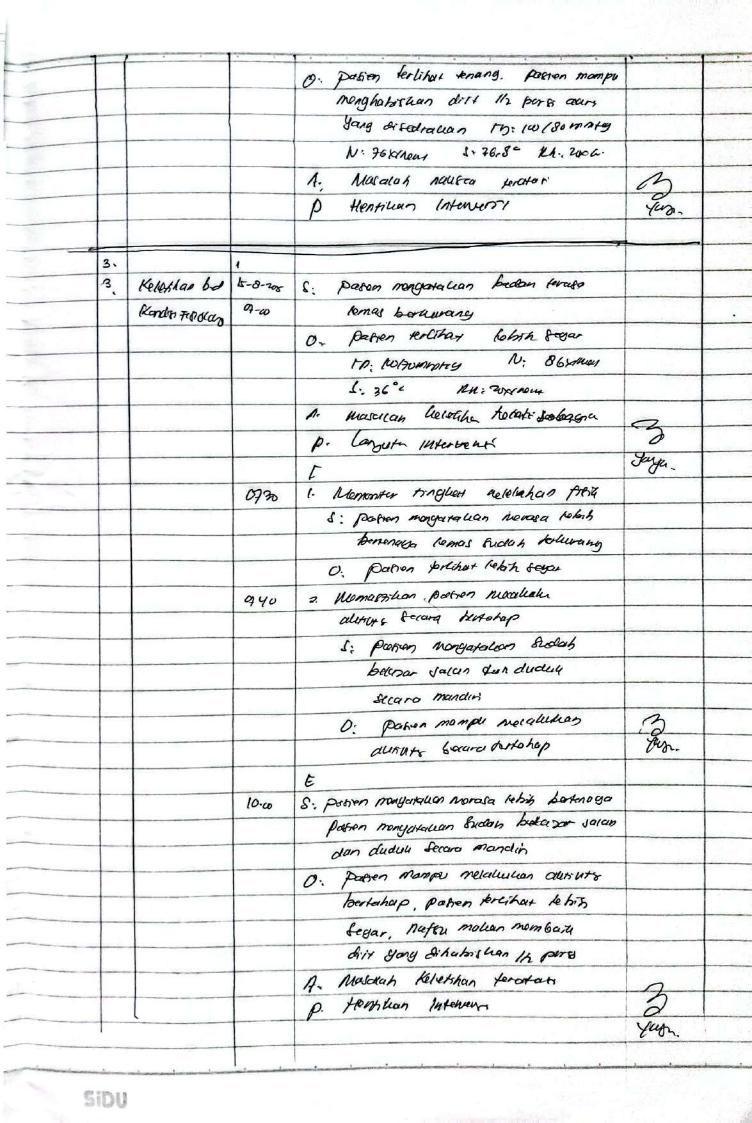 O: pasien terlihat tenang. pasien mampu
menghabiskan diit 1/2 porsi
yang disediakan TD: 100/80 mmHg
N: 76x/menit S: 36,8°
A. Masalah nausea teratasi
P Hentikan Intervensi
3.
3. Keletihan bd 15-8- S: pasien mengatakan badan terasa
Kondisi Fisiologis 09.00 lemas berkurang
O. pasien terlihat lebih segar
TD: mmHg N: 86x/menit
S: 36°C RR: 20x/menit
A. masalah keletihan teratasi sebagian
P. Lanjutkan Intervensi
I
0930 1. Memonitor tingkat kelelahan fisik
S: pasien mengatakan merasa lebih
bertenaga lemas sudah berkurang
O. pasien terlihat lebih segar
0940 2. Memastikan pasien melakukan
aktivitas secara bertahap
S: pasien mengatakan sudah
belajar jalan dan duduk
secara mandiri
O: pasien mampu melakukan
aktivitas secara bertahap
E
10.00 S: pasien mengatakan merasa lebih bertenaga
pasien mengatakan sudah belajar jalan
dan duduk secara mandiri
O: pasien mampu melakukan aktivitas
bertahap, pasien terlihat lebih
segar, nafsu makan membaik
diit yang dihabiskan 1/2 porsi
A. Masalah Keletihan teratasi
P. Hentikan Intervensi
SiDU